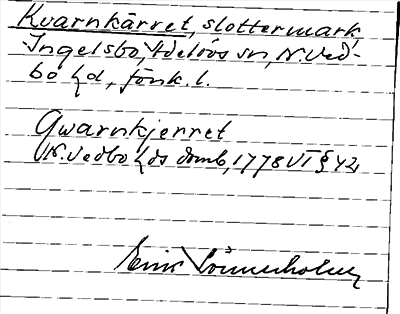 Kvarnkärret, slottermark,
Ingelsbo, Adelövs sn, N. Ved-
bo hd, Jönk. l.
Qwarnkjerret
N. Vedbo hds domb, 1778 VI § 42,
Erik Lönnerholm